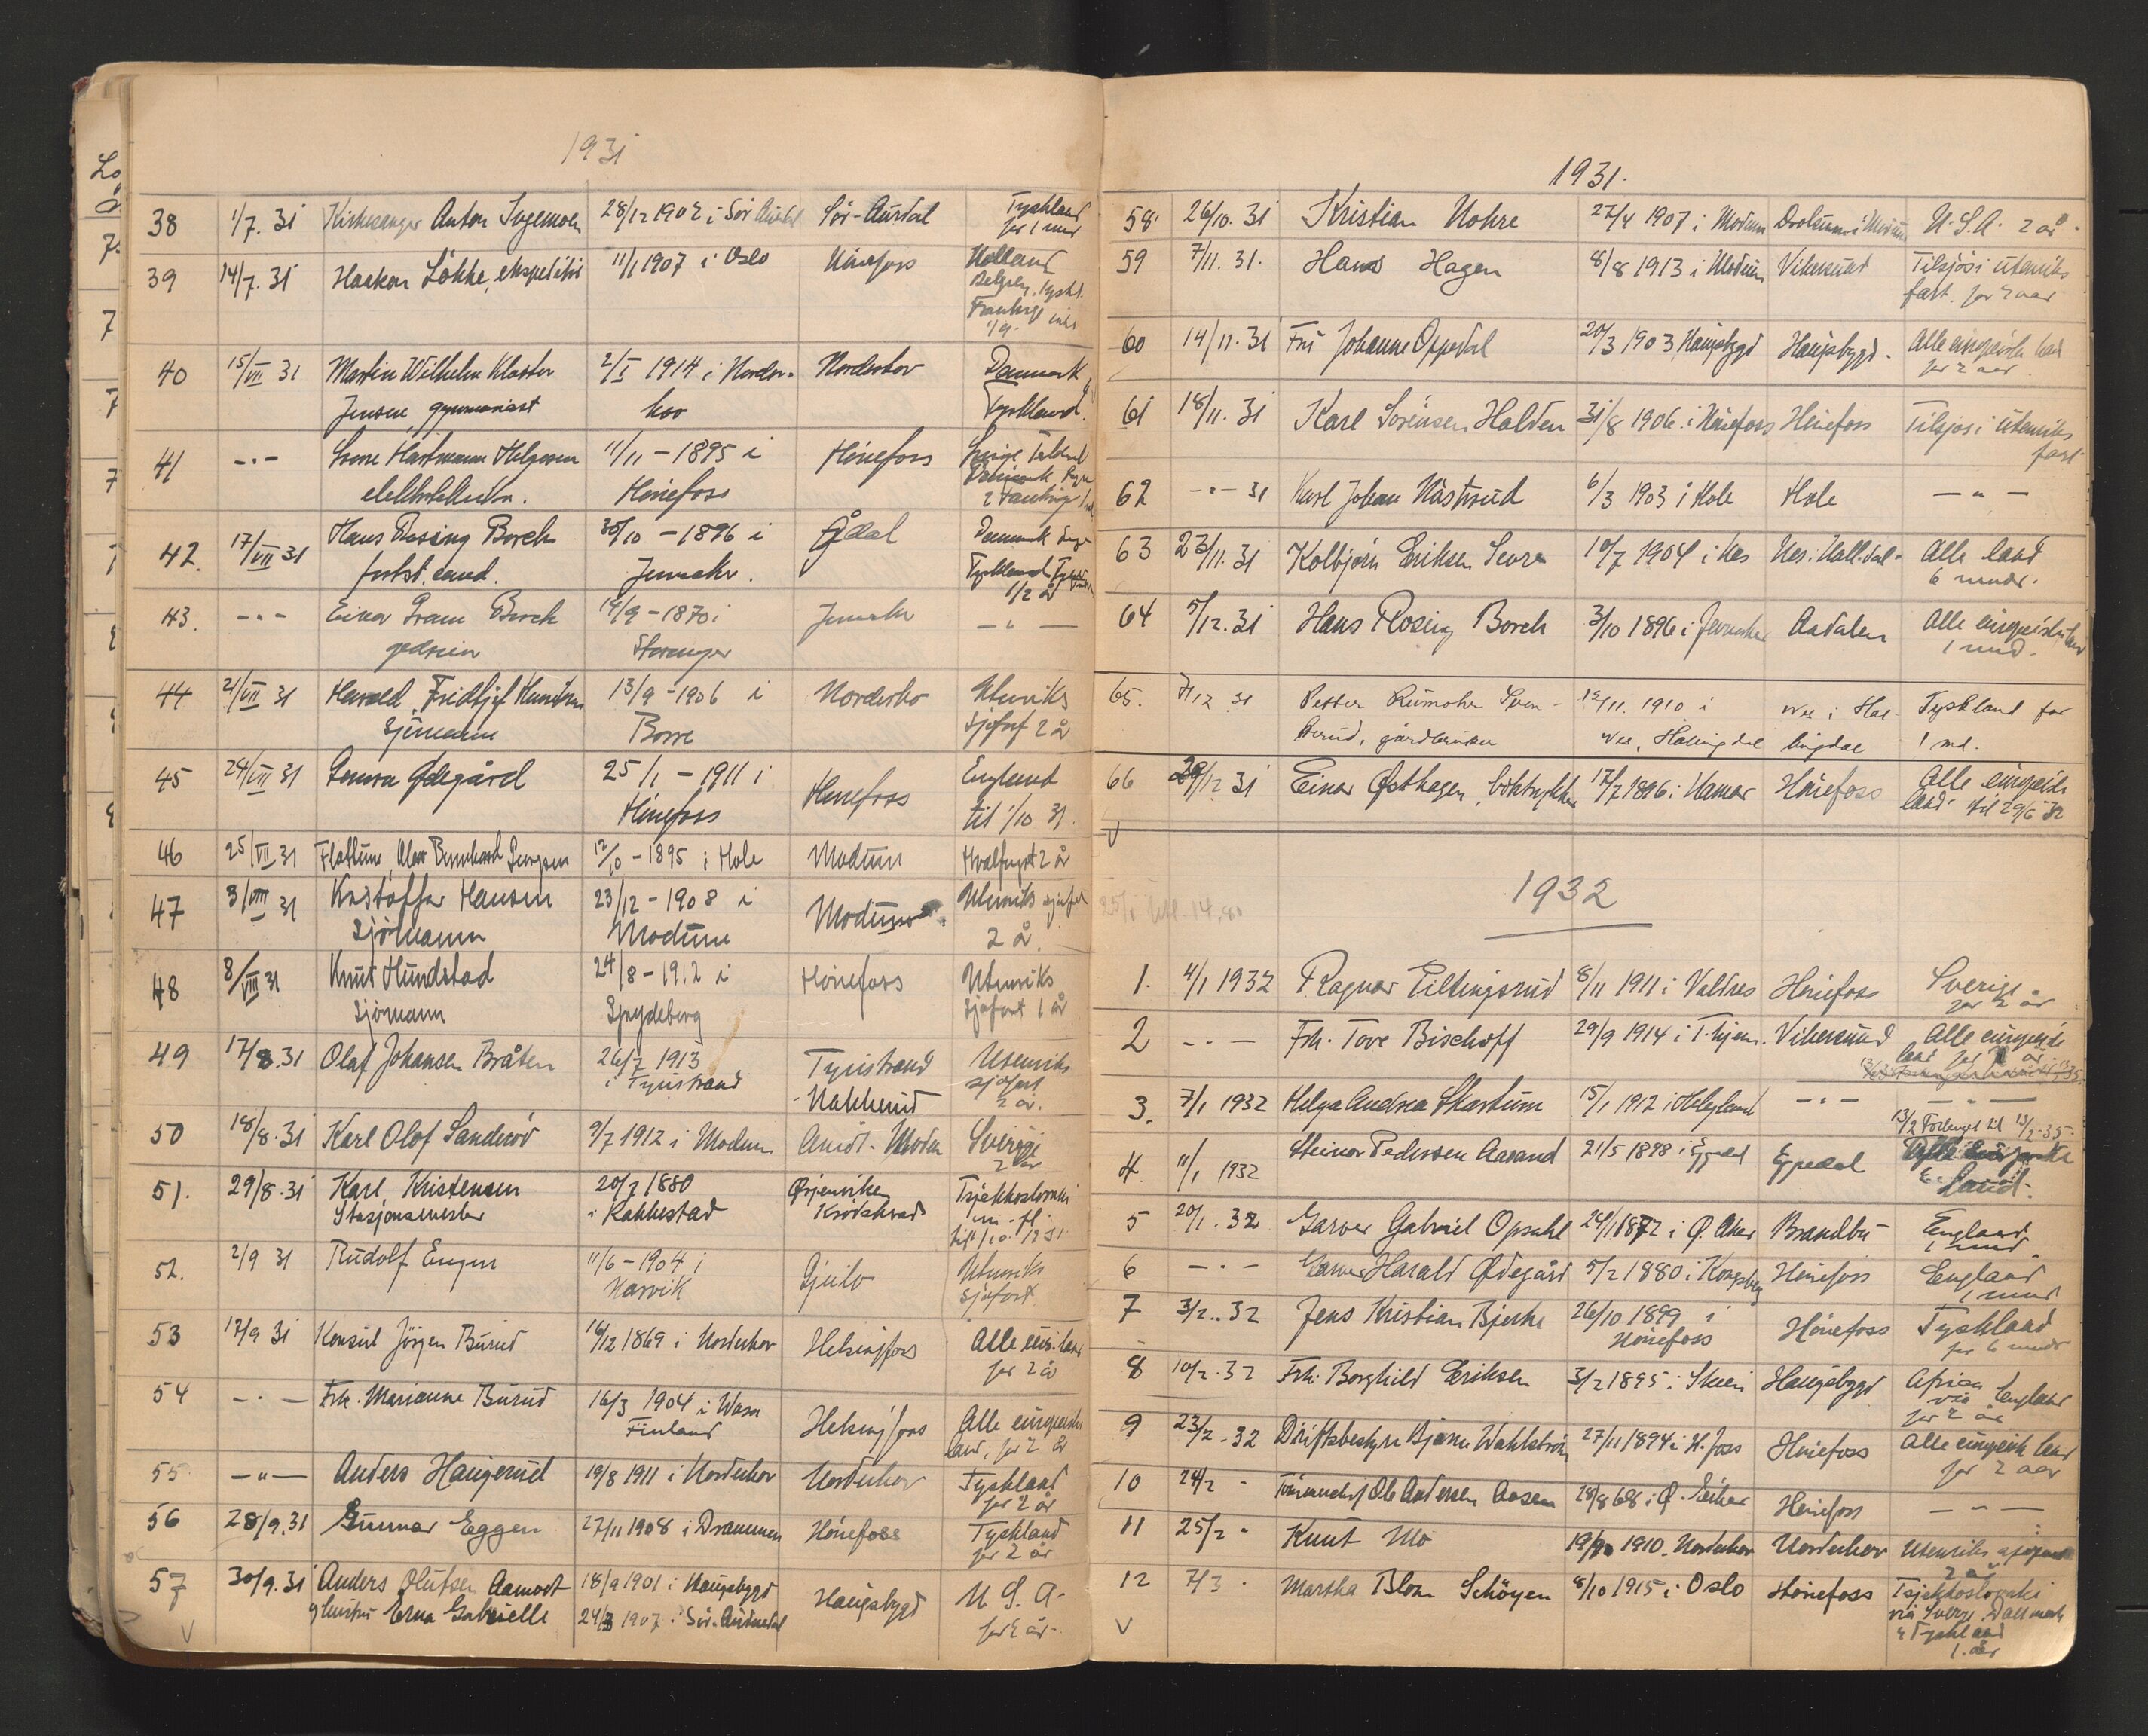 1931
38 1/7. 31 Kirkesanger Anton 28/12 1902 i Sør Aurdal Sør-Aurdal Tyskland
for 1 mnd
39 14/7. 31 Haakon Løkke, ekspeditør 11/1 1907 i Oslo Hønefoss Holland
Belgien, Tyskl.
Frankrige
1/9.
40 15/VII 31 Martin Wilhelm Kloster 2/I 1914 i Norder- Norderhov Danmark
Jensen, gymnasiast hov Tyskland.
41 -"- Hartmann Helgesen 11/11 - 1895 i Hønefoss
Hønefoss Danmark
42. 17/VII 31 Hans Rosing Borch 30/10 - 1896 i Ådal Danmark
forst. cand. Jevnaker. Tyskland
1/2 år
43. -"- Einar Gram Borch 19/9 - 1870 i Jevnaker - " -
Stavanger
44 21/VII 31 Harald Fridtjof 13/9 - 1906 i Norderho Utenriks
Sjømann Borre sjøfart 2 år
45 24/VII 31 Ødegård 25/1 - 1911 i Hønefoss England
Hønefoss til 1/10 31.
46 25/VII 31 Flattum, Bernhard - 1895 i Hole Modum Hvalfangst 2 år
47 3/VIII 31 Kristoffer Hansen 23/12 - 1908 i Modum Utenriks sjøfart
Sjømann Modum 2 å.
48 8/VIII 31 Knut Hundstad 24/8 - 1912 i Hønefoss Utenriks
Sjømann Spydeberg sjøfart 1 år
49 17/8. 31 Olaf Johansen Bråten 26/7 1913 Tyristrand Utenriks
i Tyristrand Nakkerud sjøfart
2 år.
50 18/8. 31 Karl Olof Sanderød 9/7 1912 i Modum Åmot - Modum Sverige
2 år
51. 29/8. 31 Karl Kristensen 20/7 1880 Ørjenviken Tsjekkoslovaki
Stasjonsmester i Rakkestad Krødsherad m. fl.
til 1/10 1931
52. 2/9 31 Rudolf Engen 11/6 - 1904 i Gjeilo Utenriks
Narvik sjøfart.
53 17/9 31 Konsul Jörgen Burud 16/12 1869 i Norderhov Helsingfors Alle eur. land
for 2 å
54 - " - Frk. Marianne Burud 16/3 1904 i Wasa Helsingfors Alle europeiske
Finland land, for 2 år
55 - " - Anders Haugerud 19/8 1911 i Norderhov Norderhov Tyskland
for 2 år
56 28/9. 31 Gunnar Eggen 27/11 1908 i Drammen Hönefoss Tyskland
for 2 år
57 30/9. 31 Anders Olufsen Aamodt 18/9 1901 i Haugsbygd Haugsbygd U. S. A.
og hustru Erna Gabrielle 24/3 1907 i Sør-Audnedal for 2 år.
V
1931.
58 26/10. 31 Kristian Mohre 27/4 1907 i Modum Drolsum i Modum U. S. A. 2 år.
59 7/11. 31. Hans Hagen 8/8 1913 i Modum Vikersund Tilsjøs i utenriks
fart. for 2 aar
60 14/11. 31 Fru Johanne Oppedal 20/3 1903, Haugsbygd Haugsbygd. Alle europeiske land
for 2 aar.
61 18/11. 31 Karl Sørensen Halden 31/8 1906. i Hønefoss Hønefoss Tilsjøs i utenriks
fart
62 - " - 31 Karl Johan 6/3 1903 i Hole Hole - " -
63 23/11. 31 Kolbjörn Eriksen Sevre 10/7 1904 i Nes Nes. Hall.dal. Alle land
6 mndr.
64 5/12. 31 Hans Rosing Borch 3/10 1896 i Jevnaker Aadalen Alle europeiske land
1 mnd.
65. 7/12 31 Petter Rumohr Sven- 12/11. 1910 i Nes i Hal- Tyskland for
kerud, gårdbruker Nes, Hallingdal lingdal 1 md.
66 29/12 31 Einar Østhagen, boktrykker 17/7 1896 i Hamar Hønefoss Alle europeiske
land til 29/6 32
V
1932
1. 4/1 1932 Ragnar Tiltingsrud 8/11 1911 i Valdres Hønefoss Sverige
for 2 år
2 - " - Frk. Tove Bischoff 29/9 1914 i T.hjem. Vikersund Alle europeiske
land for år
3. 7/1 1932 Helga Andrea Skartum 15/1 1912 i Helgeland - " - - " -
13/2 Forlenget til 13/2-35.
4. 11/1 1932 Steinar Pedersen Aasand 21/5 1898 i Eggedal Eggedal
land.
5 20/1. 32 Garver Gabriel Opsahl 24/1 1872 i Ø. Aker Brandbu England
1 mnd.
6 - " - Garver Harald Ødegård 5/2 1880 i Kongsberg Hønefoss England
1 mnd
7 3/2. 32 Jens Kristian Bjerke 26/10 1899 i Hönefoss Tyskland
Hønefoss for 6 mndr
8 10/2. 32 Frk. Borghild Eriksen 3/2 1895 i Skien Haugsbygd Africa
via England
for 2 år
9 23/2. 32 Driftsbestyrer Bjarne Wahlstrøm 27/11 1894 i H.foss Hønefoss Alle europeiske land
for 2 aar
10 24/2 " Tømmerm. Ole Andersen Aasen 28/8 68 i Ø. Eiker Hønefoss - " -
11 25/2 " Knut Mo 19/9 1910. Norderhov Norderhov Utenriks sjøfart
2 år
12 7/3 " Martha Blom Schöyen 8/10 1915 i Oslo Hönefoss Tsjekkoslovaki
via Sverge, Danmark
& Tyskland
1. år
V